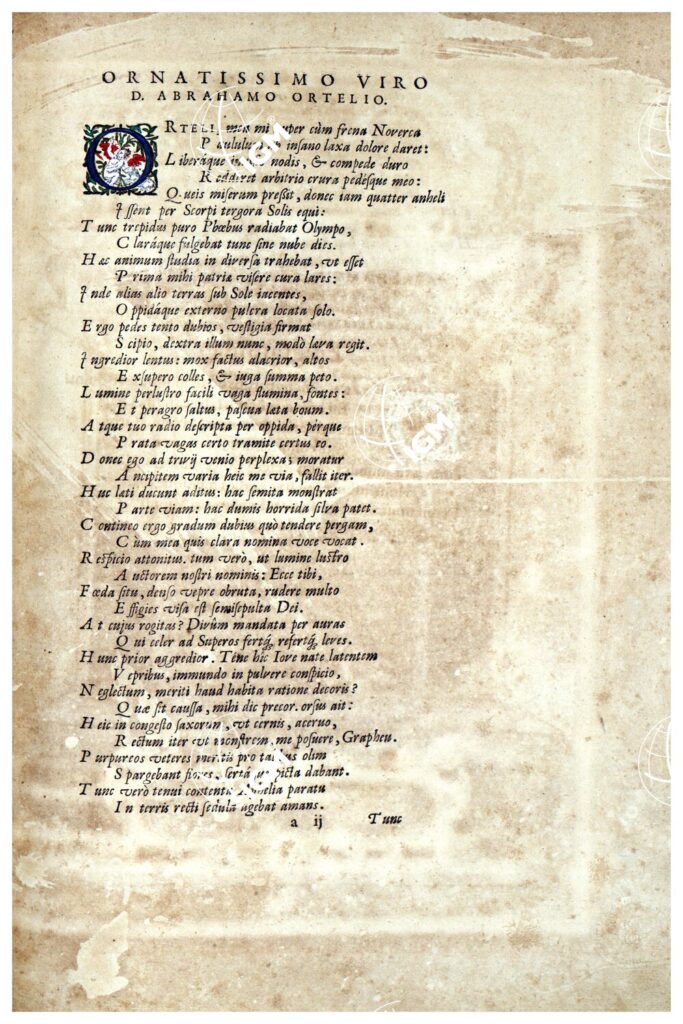 ORNATISSIMO VIRO
D. ABRAHAMO ORTELIO.
ORTELI, mea mi nuper cùm frena Noverca
Paululum insano laxa dolore daret:
Liberáque nodis, & compede duro
Redderet arbitrio crura pedésque meo:
Queis miserum preßit, donec iam quatter anheli
Issent per Scorpi tergora Solis equi:
Tunc trepidus puro Phœbus radiabat Olympo,
Claráque fulgebat tunc sine nube dies.
Hæc animum studia in diversa trahebat, ut esset
Prima mihi patrias visere cura lares:
Inde alias alio terras sub Sole iacentes,
Oppidáque externo pulcra locata solo.
Ergo pedes tento dubios, vestigia firmat
Scipio, dextra illum nunc, modò læva regit.
Ingredior lentus: mox factus alacrior, altos
Exsupero colles, & iuga summa peto.
Lumine perlustro facili vaga flumina, fontes:
Et peragro saltus, pascua læta boum.
Atque tuo radio descripta per oppida, pérque
Prata vagas certo tramite certus eo.
Donec ego ad trivij venio perplexa; moratur
Ancipitem varia heic me via, fallit iter.
Huc læti ducunt aditus: hac semita monstrat
Parte viam: hac dumis horrida silva patet.
Contineo ergo gradum dubius quò tendere pergam,
Cùm mea quis clara nomina voce vocat.
Respicio attonitus. tum verò, ut lumine lustro
Auctorem nostri nominis: Ecce tibi,
Fœda situ, denso vepre obruta, rudere multo
Effigies visa est semisepulta Dei.
At cujus rogitas? Divûm mandata per auras
Qui celer ad Superos fertq́, refertq́, leves.
Hunc prior aggredior. Téne hîc Iove nate latentem
Vepribus, immundo in pulvere conspicio,
Neglectum, meriti haud habita ratione decoris?
Quæ sit caussa, mihi dic precor. orsus ait:
Heic in congesto saxorum, ut cernis, acervo,
Rectum iter ut monstrem, me posuere, Grapheu.
Purpureos veteres meritis pro talibus olim
Spargebant flores, sertáque picta dabant.
Tunc verò tenui contenta paratu
In terris recti sedula agebat amans.
a ij Tunc
IGM